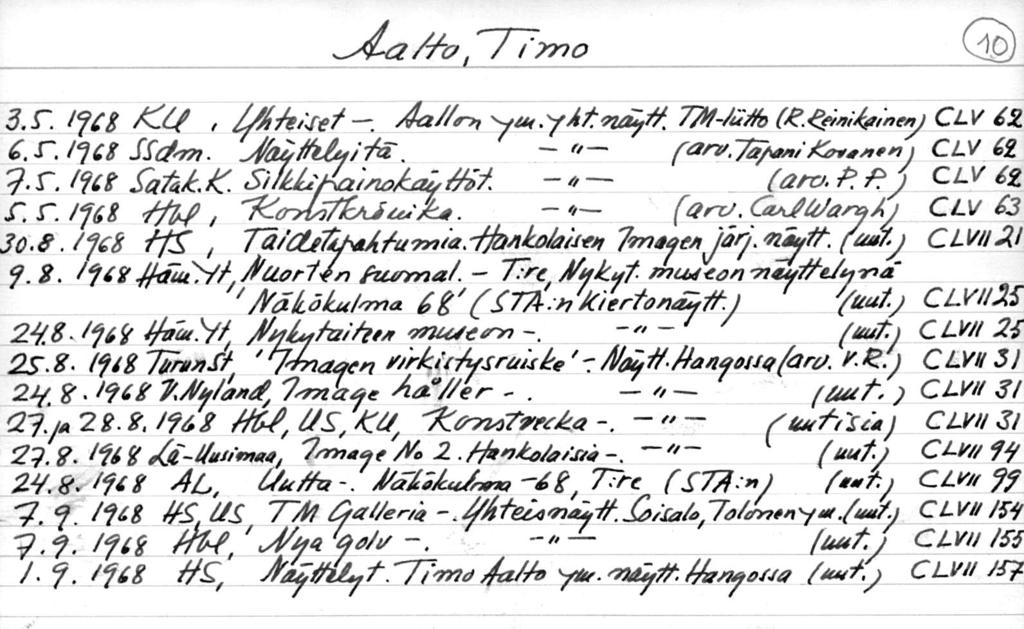 Aalto, Timo 10
3.5. 1968 KU, Yhteiset -. Aallon ym. yht. näytt. TM-liitto (R. Reinikainen) CLV 62
6.5. 1968 SSdm. Näyttelyitä. -"- (arv. Tapani Kovanen) CLV 62
7.5. 1968 Satak.K. Silkkipainokäyttöt. -"- (arv. P. P.) CLV 62
5.5. 1968 Hbl, Konstkrönika. -"- (arv. Carl Wargh) CLV 63
30.8. 1968 HS, Taidetapahtumia. Hankolaisen Imagen järj. näytt. (uut.) CLVII 21
9.8. 1968 Häm.Yt, Nuorten suomal. - T:re, Nykyt. museon näyttelynä
'Näkökulma 68' (STA:n kiertonäytt.) (uut.) CLVII 25
24.8. 1968 Häm.Yt, Nykytaiteen museon -. -"- (uut.) CLVII 25
25.8. 1968 TurunSt, 'Imagen virkistysruiske' - Näytt. Hangossa (arv. V.R.) CLVII 31
24.8. 1968 V.Nyland, Image håller -. -"- (uut.) CLVII 31
27. ja 28.8. 1968 Hbl, US, KU, Konstvecka -. -"- (uutisia) CLVII 31
27.8. 1968 Lä-Uusimaa, Image No 2. Hankolaisia -. -"- (uut.) CLVII 94
24.8. 1968 AL, Uutta -. Näkökulma -68, T:re (STA:n) (uut.) CLVII 99
7.9. 1968 HS, US, TM Galleria -. Yhteisnäytt. Soisalo, Tolonen ym. (uut.) CLVII 154
7.9. 1968 Hbl, Nya golv -. -"- (uut.) CLVII 155
1.9. 1968 HS, Näyttelyt. Timo Aalto ym. näytt. Hangossa (uut.) CLVII 157